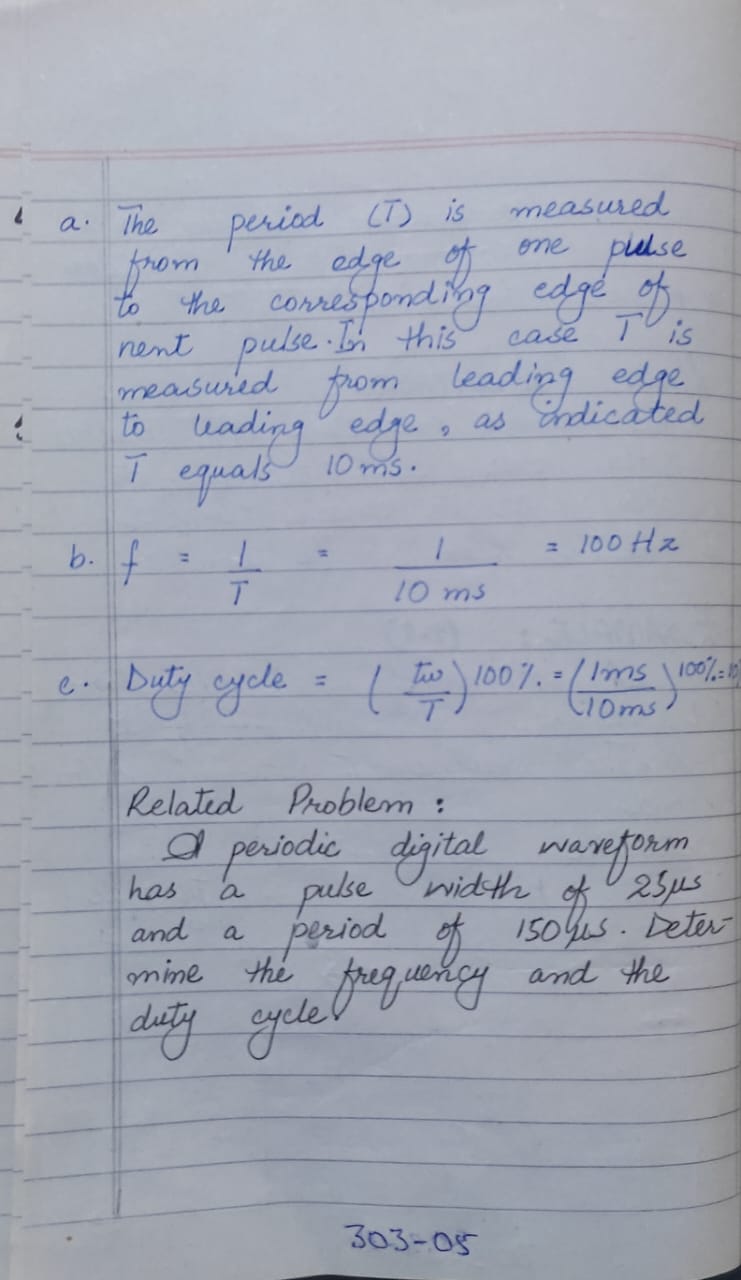 a. The period (T) is measured
from the edge of one pulse
to the corresponding edge of
nent pulse. In this case T is
measured from leading edge
to leading edge, as indicated
T equals 10 ms.
b. f = 1/T = 1/10 ms = 100 Hz
c. Duty cycle = (tw/T) 100% = (1ms/10ms) 100% = 10%
Related Problem :
A periodic digital waveform
has a pulse width of 25μs
and a period of 150μs. Deter-
mine the frequency and the
duty cycle
303-05